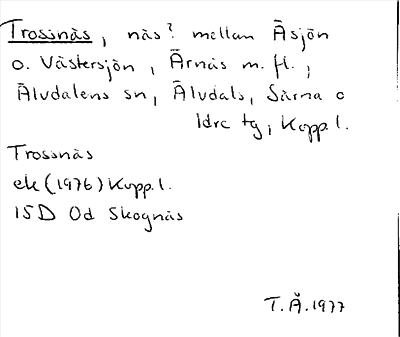 Trossnäs, näs? mellan Åsjön
o. Västersjön, Ärnäs m. fl.,
Älvdalens sn, Älvdals, Särna o
Idre tg, Kopp. l.
Trossnäs
ek (1976) Kopp. l.
15D 0d Skognäs
T. Å. 1977